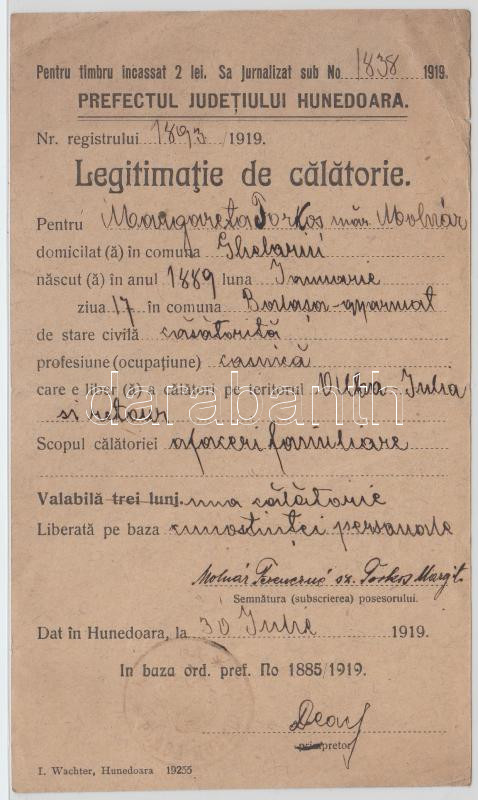 Pentru timbru incassat 2 lei. Sa jurnalizat sub No 1838 1919.
PREFECTUL JUDEȚIULUI HUNEDOARA.
Nr. registrului 1893 /1919.
Legitimație de călătorie.
Pentru Margareta Torkos măr. Molnár
domicilat (ă) în comuna Ghelariu
născut (ă) în anul 1889 luna Ianuarie
ziua 17 în comuna
de stare civilă căsătorită
profesiune (ocupațiune) casnică
care e liber (ă) a călători pe teritorul Alba Iulia
si retour
Scopul călătoriei afaceri familiare
Valabilă trei luni. una călătorie
Liberată pe baza cunostintei personale
Molnár Ferencné sz. Torkos Margit
Semnătura (subscrierea) posesorului.
Dat în Hunedoara, la 30 Iulie 1919.
In baza ord. pref. No 1885/1919.
primpretor
I. Wachter, Hunedoara 19255
darabanth